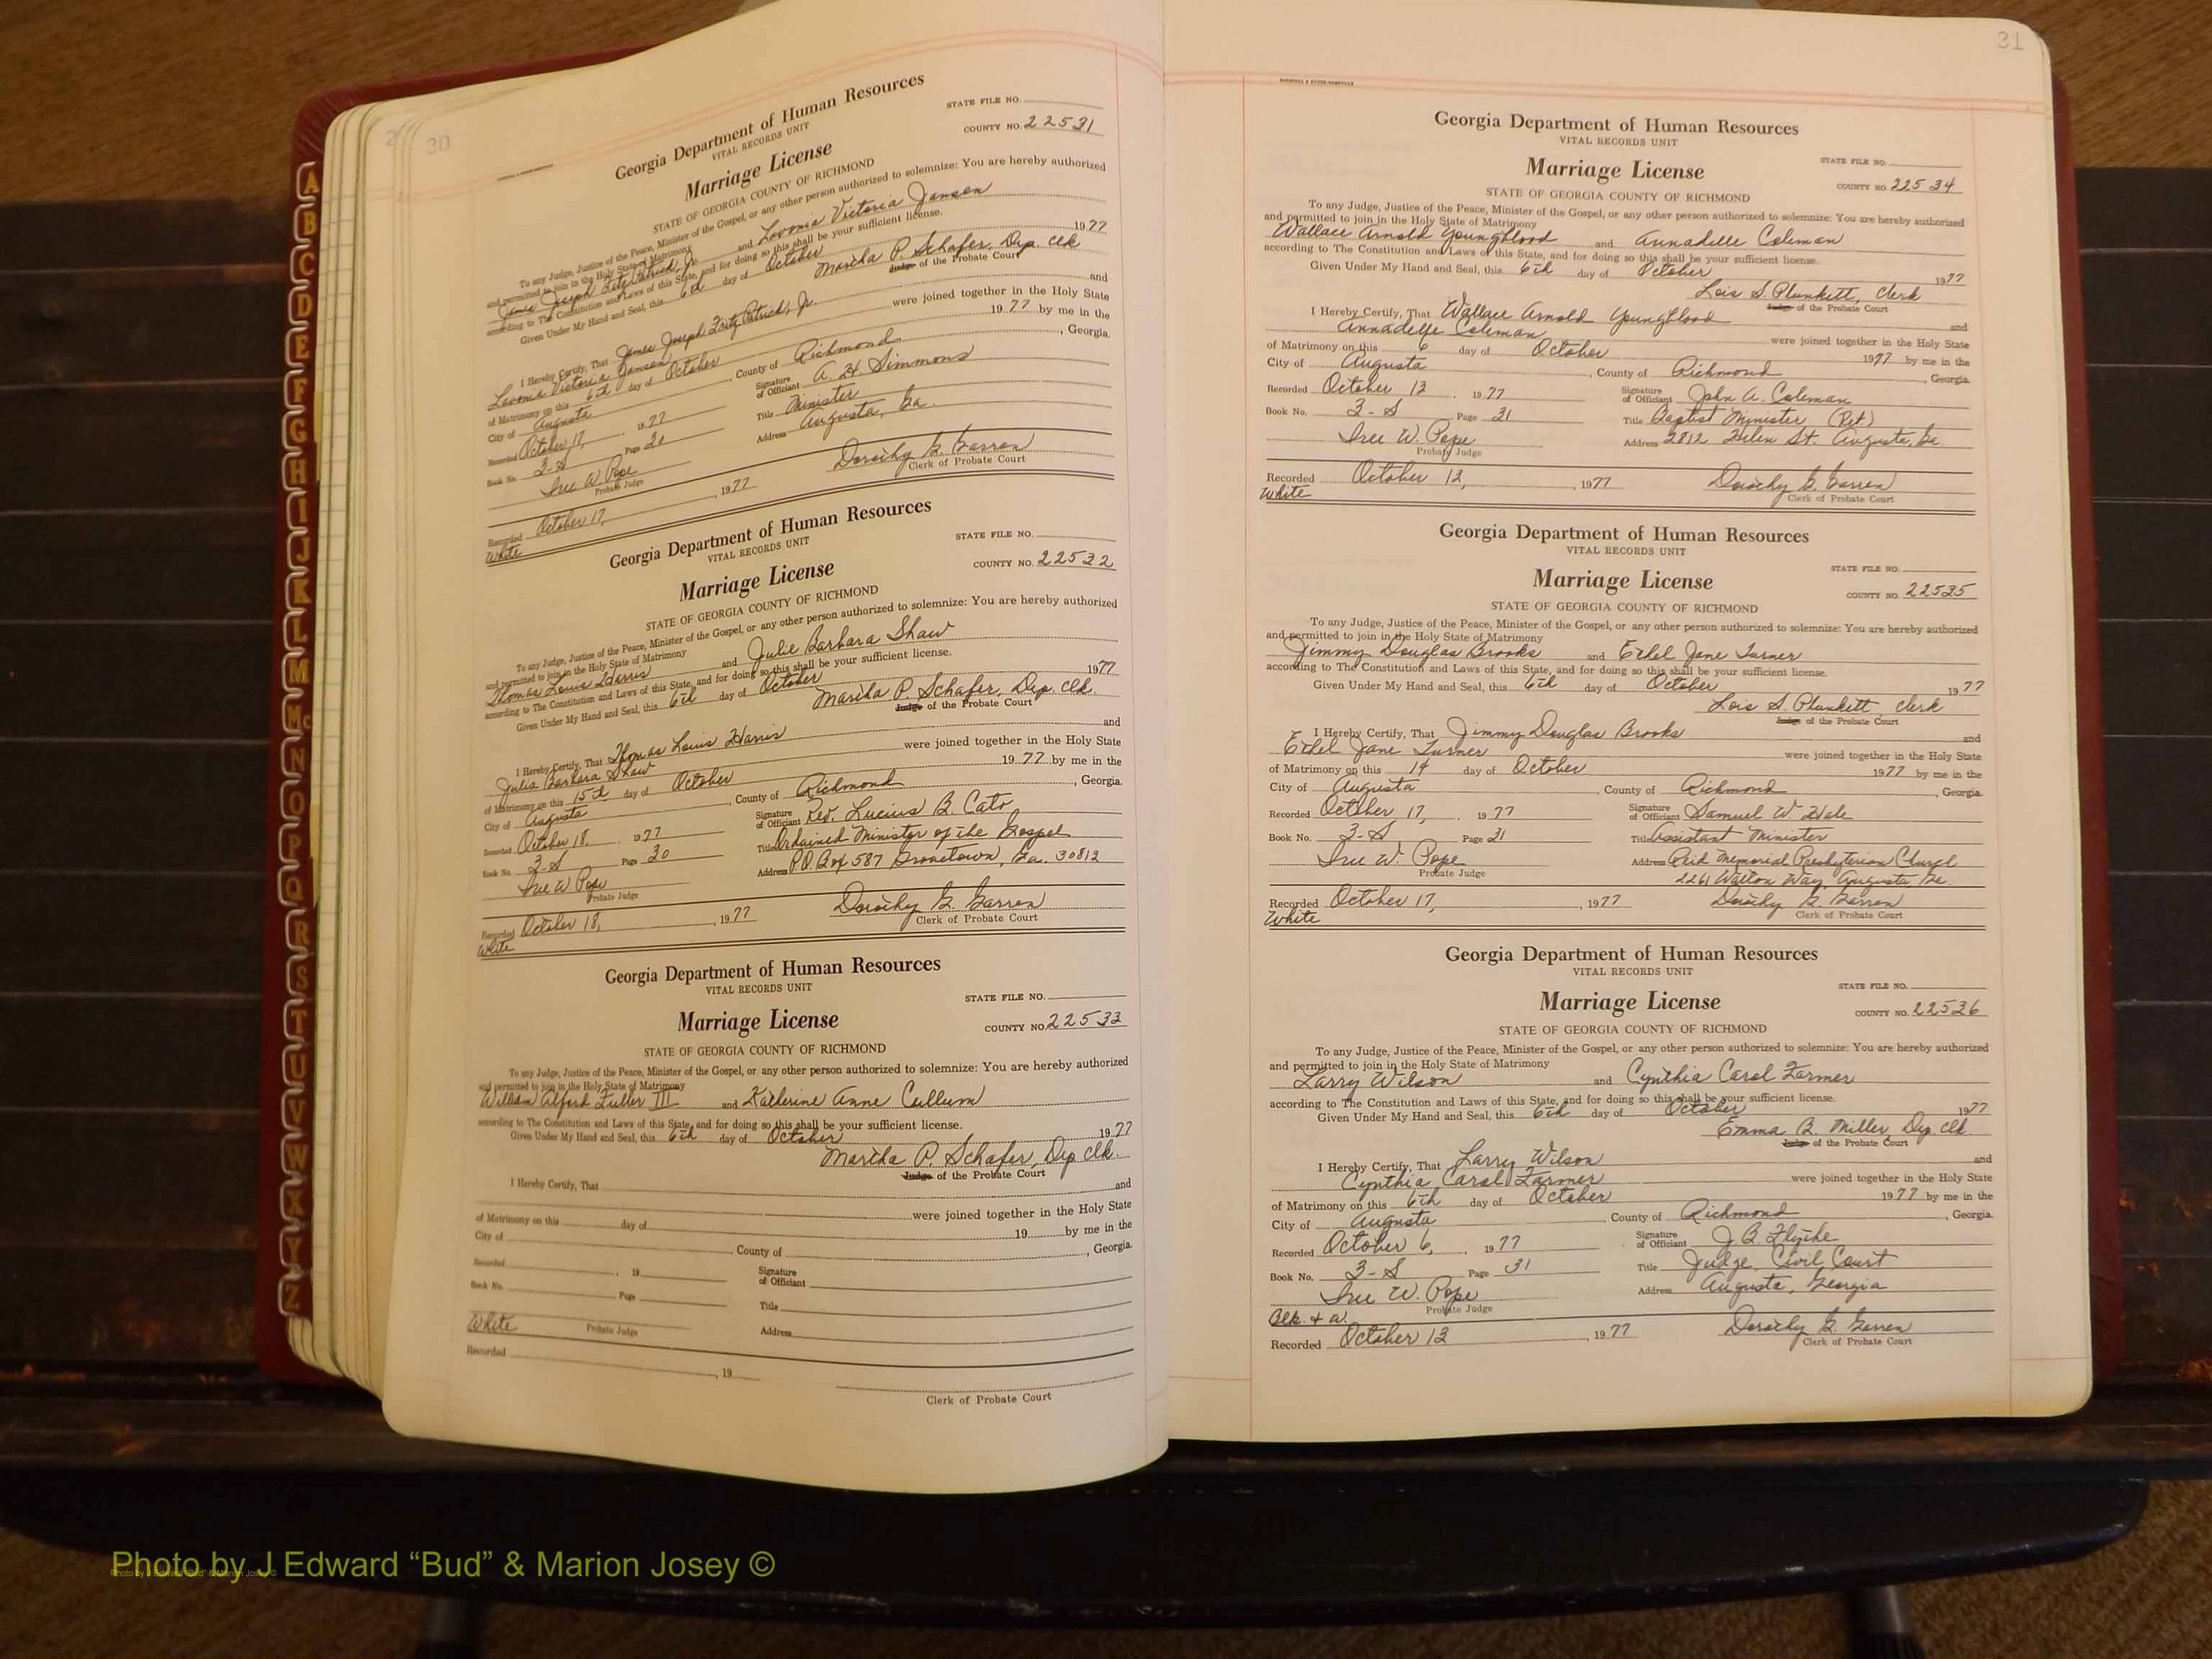 30
Georgia Department of Human Resources
VITAL RECORDS UNIT
STATE FILE NO.
Marriage License
COUNTY NO. 22531
STATE OF GEORGIA COUNTY OF RICHMOND
To any Judge, Justice of the Peace, Minister of the Gospel, or any other person authorized to solemnize: You are hereby authorized
and permitted to join in the Holy State of Matrimony
James Joseph FitzPatrick, Jr. and Lavonia Victoria Jansen
according to The Constitution and Laws of this State, and for doing so this shall be your sufficient license.
Given Under My Hand and Seal, this 6th day of October 1977
Martha P. Schafer, Dep. Clk
Judge of the Probate Court
I Hereby Certify, That James Joseph FitzPatrick, Jr. and
Lavonia Victoria Jansen were joined together in the Holy State
of Matrimony on this 6th day of October 1977 by me in the
City of Augusta, County of Richmond, Georgia.
Recorded October 17, 1977 Signature of Officiant A. H. Simmons
Book No. 3-S Page 30 Title Minister
Iree W. Pope Address Augusta, Ga.
Probate Judge
Recorded October 17, 1977 Dorothy G. Garren
White Clerk of Probate Court
Georgia Department of Human Resources
VITAL RECORDS UNIT
STATE FILE NO.
Marriage License
COUNTY NO. 22532
STATE OF GEORGIA COUNTY OF RICHMOND
To any Judge, Justice of the Peace, Minister of the Gospel, or any other person authorized to solemnize: You are hereby authorized
and permitted to join in the Holy State of Matrimony
Thomas Louis Harris and Julie Barbara Shaw
according to The Constitution and Laws of this State, and for doing so this shall be your sufficient license.
Given Under My Hand and Seal, this 6th day of October 1977
Martha P. Schafer, Dep. Clk.
Judge of the Probate Court
I Hereby Certify, That Thomas Louis Harris and
Julia Barbara Shaw were joined together in the Holy State
of Matrimony on this 15th day of October 1977 by me in the
City of Augusta, County of Richmond, Georgia.
Recorded October 18, 1977 Signature of Officiant Rev. Lucius B. Cato
Book No. 3-S Page 30 Title Ordained Minister of the Gospel
Iree W Pope Address P.O. Box 587 Grovetown, Ga. 30813
Probate Judge
Recorded October 18, 1977 Dorothy G. Garren
White Clerk of Probate Court
Georgia Department of Human Resources
VITAL RECORDS UNIT
STATE FILE NO.
Marriage License
COUNTY NO. 22533
STATE OF GEORGIA COUNTY OF RICHMOND
To any Judge, Justice of the Peace, Minister of the Gospel, or any other person authorized to solemnize: You are hereby authorized
and permitted to join in the Holy State of Matrimony
William Alford Fuller III and Katherine Anne Cullum
according to The Constitution and Laws of this State, and for doing so this shall be your sufficient license.
Given Under My Hand and Seal, this 6th day of October 1977
Martha P. Schafer, Dep. Clk.
Judge of the Probate Court
I Hereby Certify, That and
were joined together in the Holy State
of Matrimony on this day of 19 by me in the
City of , County of , Georgia.
Recorded , 19 Signature of Officiant
Book No. Page Title
White Probate Judge Address
Recorded , 19
Clerk of Probate Court
31
Georgia Department of Human Resources
VITAL RECORDS UNIT
STATE FILE NO.
Marriage License
COUNTY NO. 22534
STATE OF GEORGIA COUNTY OF RICHMOND
To any Judge, Justice of the Peace, Minister of the Gospel, or any other person authorized to solemnize: You are hereby authorized
and permitted to join in the Holy State of Matrimony
Wallace Arnold Youngblood and Annadelle Coleman
according to The Constitution and Laws of this State, and for doing so this shall be your sufficient license.
Given Under My Hand and Seal, this 6th day of October 1977
Lois S. Plunkett, Clerk
Judge of the Probate Court
I Hereby Certify, That Wallace Arnold Youngblood and
Annadelle Coleman were joined together in the Holy State
of Matrimony on this 6 day of October 1977 by me in the
City of Augusta, County of Richmond, Georgia.
Recorded October 13, 1977 Signature of Officiant John A. Coleman
Book No. 3-S Page 31 Title Baptist Minister (Ret.)
Iree W. Pope Address 2812 Helen St. Augusta, Ga.
Probate Judge
Recorded October 13, 1977 Dorothy G. Garren
White Clerk of Probate Court
Georgia Department of Human Resources
VITAL RECORDS UNIT
STATE FILE NO.
Marriage License
COUNTY NO. 22535
STATE OF GEORGIA COUNTY OF RICHMOND
To any Judge, Justice of the Peace, Minister of the Gospel, or any other person authorized to solemnize: You are hereby authorized
and permitted to join in the Holy State of Matrimony
Jimmy Douglas Brooks and Ethel Jane Turner
according to The Constitution and Laws of this State, and for doing so this shall be your sufficient license.
Given Under My Hand and Seal, this 6th day of October 1977
Lois S. Plunkett, Clerk
Judge of the Probate Court
I Hereby Certify, That Jimmy Douglas Brooks and
Ethel Jane Turner were joined together in the Holy State
of Matrimony on this 14 day of October 1977 by me in the
City of Augusta, County of Richmond, Georgia.
Recorded October 17, 1977 Signature of Officiant Samuel W. Hale
Book No. 3-S Page 31 Title Assistant Minister
Iree W. Pope Address Reid Memorial Presbyterian Church
Probate Judge 2261 Walton Way, Augusta, Ga.
Recorded October 17, 1977 Dorothy G. Garren
White Clerk of Probate Court
Georgia Department of Human Resources
VITAL RECORDS UNIT
STATE FILE NO.
Marriage License
COUNTY NO. 22536
STATE OF GEORGIA COUNTY OF RICHMOND
To any Judge, Justice of the Peace, Minister of the Gospel, or any other person authorized to solemnize: You are hereby authorized
and permitted to join in the Holy State of Matrimony
Larry Wilson and Cynthia Carol Farmer
according to The Constitution and Laws of this State, and for doing so this shall be your sufficient license.
Given Under My Hand and Seal, this 6th day of October 1977
Emma B. Miller, Dep. Clk.
Judge of the Probate Court
I Hereby Certify, That Larry Wilson and
Cynthia Carol Farmer were joined together in the Holy State
of Matrimony on this 6th day of October 1977 by me in the
City of Augusta, County of Richmond, Georgia.
Recorded October 6, 1977 Signature of Officiant J. B. Flythe
Book No. 3-S Page 31 Title Judge, Civil Court
Iree W. Pope Address Augusta, Georgia
Blk. & W. Probate Judge
Recorded October 13, 1977 Dorothy G. Garren
Clerk of Probate Court
A
B
C
D
E
F
G
H
I
J
K
L
M
Mc
N
O
P
Q
R
S
T
U
V
W
X
Y
Z
Photo by J Edward “Bud” & Marion Josey ©
Photo by J Edward “Bud” & Marion Josey ©